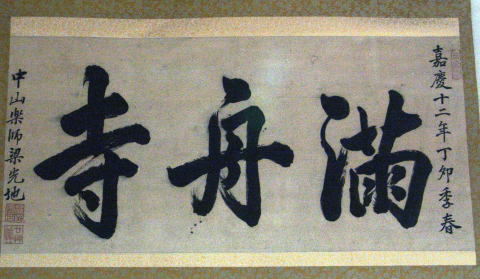 嘉慶十二年丁卯季春
滿舟寺
中山樂師梁光地